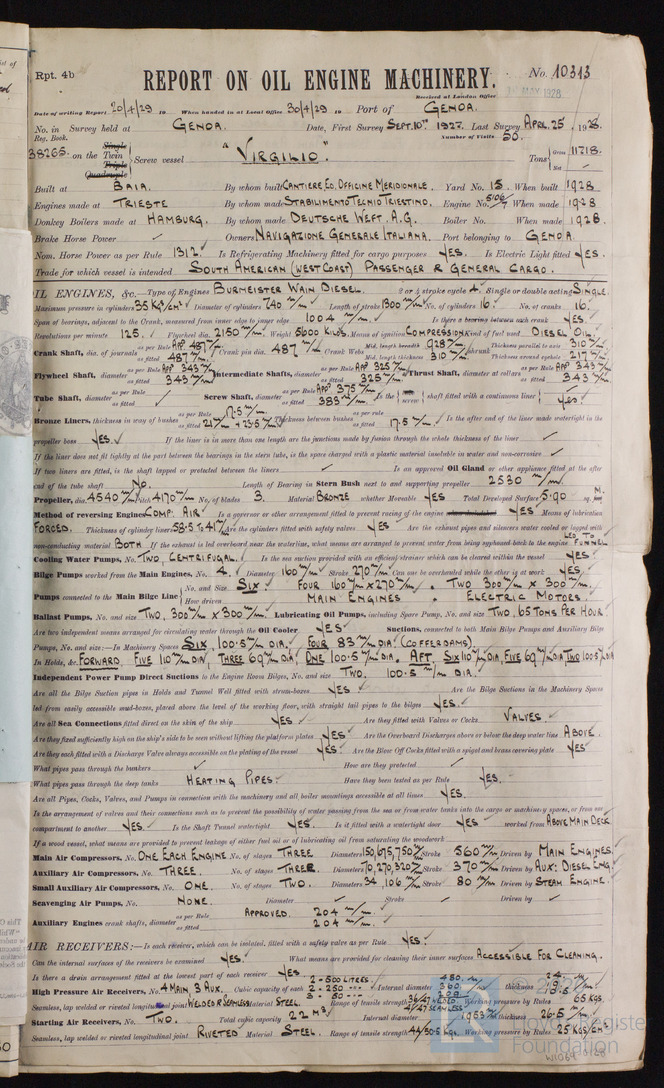 Rpt. 4b
REPORT ON OIL ENGINE MACHINERY.
No. 10313
Received at London Office
MAY 1928
Date of writing Report 20/4/29 19 When handed in at Local Office 30/4/29 19 Port of GENOA.
No. in Survey held at GENOA. Date, First Survey SEPT. 10TH 1927. Last Survey APRIL. 25, 1928.
Reg. Book. Number of Visits 50.
38265. on the Single Twin Triple Quadruple Screw vessel "VIRGILIO". Tons Gross 11718. Net
Built at BAIA. By whom built CANTIERE ED. OFFICINE MERIDIONALE. Yard No. 15. When built 1928
Engines made at TRIESTE By whom made STABILIMENTO TECNIO TRIESTINO. Engine No. 5106/7 When made 1928
Donkey Boilers made at HAMBURG. By whom made DEUTSCHE WEFT, A.G. Boiler No. When made 1928.
Brake Horse Power Owners NAVIGAZIONE GENERALE ITALIANA. Port belonging to GENOA.
Nom. Horse Power as per Rule 1312. Is Refrigerating Machinery fitted for cargo purposes YES. Is Electric Light fitted YES.
Trade for which vessel is intended SOUTH AMERICAN (WEST COAST) PASSENGER & GENERAL CARGO.
OIL ENGINES, &c.—Type of Engines BURMEISTER WAIN DIESEL. 2 or 4 stroke cycle 4. Single or double acting SINGLE.
Maximum pressure in cylinders 35 KG/CM² Diameter of cylinders 740 m/m. Length of stroke 1300 m/m No. of cylinders 16. No. of cranks 16.
Span of bearings, adjacent to the Crank, measured from inner edge to inner edge 1004 m/m. Is there a bearing between each crank YES.
Revolutions per minute 125. Flywheel dia. 2150 m/m. Weight 5600 KILOS. Means of ignition COMPRESSION Kind of fuel used DIESEL OIL.
Crank Shaft, dia. of journals as per Rule APP. 487 m/m as fitted 487 m/m Crank pin dia. 487 m/m Crank Webs Mid. length breadth 928 m/m Mid. length thickness 310 m/m Thickness parallel to axis 310 m/m Thickness around eyehole 217 m/m
Flywheel Shaft, diameter as per Rule APP. 343 m/m as fitted 343 m/m Intermediate Shafts, diameter as per Rule APP 325 m/m as fitted 325 m/m. Thrust Shaft, diameter at collars as per Rule APP 343 m/m as fitted 343 m/m
Tube Shaft, diameter as per Rule as fitted Screw Shaft, diameter as per Rule APP. 375 m/m as fitted 383 m/m. Is the screw shaft fitted with a continuous liner YES.
Bronze Liners, thickness in way of bushes as per Rule 17.5 m/m. as fitted 21 m/m + 23.5 m/m Thickness between bushes as per rule as fitted 17.5 m/m. Is the after end of the liner made watertight in the
propeller boss YES. If the liner is in more than one length are the junctions made by fusion through the whole thickness of the liner
If the liner does not fit tightly at the part between the bearings in the stern tube, is the space charged with a plastic material insoluble in water and non-corrosive
If two liners are fitted, is the shaft lapped or protected between the liners Is an approved Oil Gland or other appliance fitted at the after
end of the tube shaft NO. Length of Bearing in Stern Bush next to and supporting propeller 2530 m/m.
Propeller, dia. 4540 m/m Pitch 4170 m/m No. of blades 3. Material BRONZE whether Moveable YES Total Developed Surface 5.90 sq. M.
Method of reversing Engines COMP. AIR Is a governor or other arrangement fitted to prevent racing of the engine YES Means of lubrication
FORCED. Thickness of cylinder liners 58.5 TO 41 m/m Are the cylinders fitted with safety valves YES Are the exhaust pipes and silencers water cooled or lagged with
non-conducting material BOTH If the exhaust is led overboard near the waterline, what means are arranged to prevent water from being syphoned back to the engine LED TO FUNNEL
Cooling Water Pumps, No. TWO, CENTRIFUGAL. Is the sea suction provided with an efficient strainer which can be cleared within the vessel YES
Bilge Pumps worked from the Main Engines, No. 4. Diameter 160 m/m Stroke 270 m/m Can one be overhauled while the other is at work YES.
Pumps connected to the Main Bilge Line No. and Size SIX. FOUR 160 m/m x 270 m/m. TWO 300 m/m x 300 m/m.
How driven MAIN ENGINES. ELECTRIC MOTORS.
Ballast Pumps, No. and size TWO, 300 m/m x 300 m/m. Lubricating Oil Pumps, including Spare Pump, No. and size TWO, 65 TONS PER HOUR
Are two independent means arranged for circulating water through the Oil Cooler YES Suctions, connected to both Main Bilge Pumps and Auxiliary Bilge
Pumps, No. and size:—In Machinery Spaces SIX, 100.5 m/m DIA. FOUR 83 m/m DIA (COFFERDAMS).
In Holds, &c. FORWARD, FIVE 110 m/m DIA, THREE 69 m/m DIA, ONE 100.5 m/m DIA. AFT, SIX 110 m/m DIA, FIVE 69 m/m DIA TWO 100.5 m/m DIA
Independent Power Pump Direct Suctions to the Engine Room Bilges, No. and size TWO, 100.5 m/m DIA.
Are all the Bilge Suction pipes in Holds and Tunnel Well fitted with strum-boxes YES Are the Bilge Suctions in the Machinery Spaces
led from easily accessible mud-boxes, placed above the level of the working floor, with straight tail pipes to the bilges YES.
Are all Sea Connections fitted direct on the skin of the ship YES Are they fitted with Valves or Cocks VALVES
Are they fixed sufficiently high on the ship's side to be seen without lifting the platform plates YES Are the Overboard Discharges above or below the deep water line ABOVE.
Are they each fitted with a Discharge Valve always accessible on the plating of the vessel YES. Are the Blow Off Cocks fitted with a spigot and brass covering plate YES
What pipes pass through the bunkers How are they protected
What pipes pass through the deep tanks HEATING PIPES. Have they been tested as per Rule YES.
Are all Pipes, Cocks, Valves, and Pumps in connection with the machinery and all boiler mountings accessible at all times YES.
Is the arrangement of valves and their connections such as to prevent the possibility of water passing from the sea or from water tanks into the cargo or machinery spaces, or from one
compartment to another YES. Is the Shaft Tunnel watertight YES. Is it fitted with a watertight door YES worked from ABOVE MAIN DECK
If a wood vessel, what means are provided to prevent leakage of either fuel oil or of lubricating oil from saturating the woodwork
Main Air Compressors, No. ONE EACH ENGINE No. of stages THREE Diameters 150,675,750 m/m Stroke 560 m/m Driven by MAIN ENGINES.
Auxiliary Air Compressors, No. THREE. No. of stages THREE Diameters 70,270,320 m/m Stroke 370 m/m Driven by AUX: DIESEL ENG.
Small Auxiliary Air Compressors, No. ONE. No. of stages TWO. Diameters 34, 106 m/m Stroke 80 m/m Driven by STEAM ENGINE.
Scavenging Air Pumps, No. NONE. Diameter Stroke Driven by
Auxiliary Engines crank shafts, diameter as per Rule APPROVED. 204 m/m.
as fitted 204 m/m.
AIR RECEIVERS:—Is each receiver, which can be isolated, fitted with a safety valve as per Rule YES.
Can the internal surfaces of the receivers be examined YES. What means are provided for cleaning their inner surfaces ACCESSIBLE FOR CLEANING.
Is there a drain arrangement fitted at the lowest part of each receiver YES.
High Pressure Air Receivers, No. 4 MAIN, 3 AUX. Cubic capacity of each 2 - 500 LITERS 2 - 250 3 - 50 Internal diameter 480. m/m 360 thickness
Seamless, lap welded or riveted longitudinal joint WELDED & SEAMLESS Material STEEL. Range of tensile strength 36/47 WELDED 41/47 SEAMLESS Working pressure by Rules 65 KGS.
Starting Air Receivers, No. TWO. Total cubic capacity 22 M³ Internal diameter 1953 m/m thickness 26.5 m/m
Seamless, lap welded or riveted longitudinal joint RIVETED Material STEEL. Range of tensile strength 44/50.5 KGS. Working pressure by Rules 25 KGS/CM²
Lloyd's Register
Foundation
W1069-0128